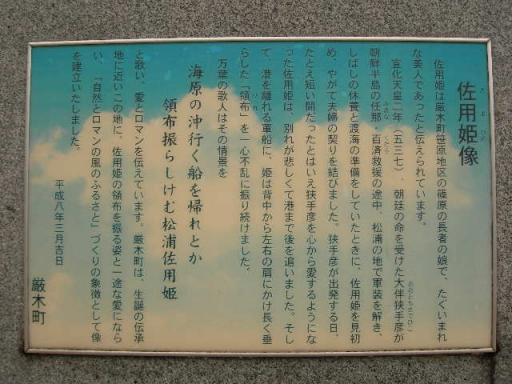 佐用姫像
佐用姫は厳木町笹原地区の篠原の長者の娘で、たぐいまれ
な美人であったと伝えられています。
宣化天皇二年（五三七）、朝廷の命を受けた大伴狭手彦が
朝鮮半島の任那・百済救援の途中、松浦の地で軍装を解き、
しばしの休養と渡海の準備をしていたときに、佐用姫を見初
め、やがて夫婦の契りを結びました。狭手彦が出発する日、
たとえ短い間だったとはいえ狭手彦を心から愛するようにな
った佐用姫は、別れが悲しくて港まで後を追いました。そし
て、港を離れる軍船に、姫は背中から左右の肩にかけ長く垂
らした「領布」を一心不乱に振り続けました。
万葉の歌人はその情景を
海原の沖行く船を帰れとか
領布振らしけむ松浦佐用姫
と歌い、愛とロマンを伝えています。厳木町は、生誕の伝承
地に近いこの地に、佐用姫の領布を振る姿と一途な愛になら
い、「自然とロマンの風のふるさと」づくりの象徴として像
を建立いたしました。
平成八年三月吉日
厳木町